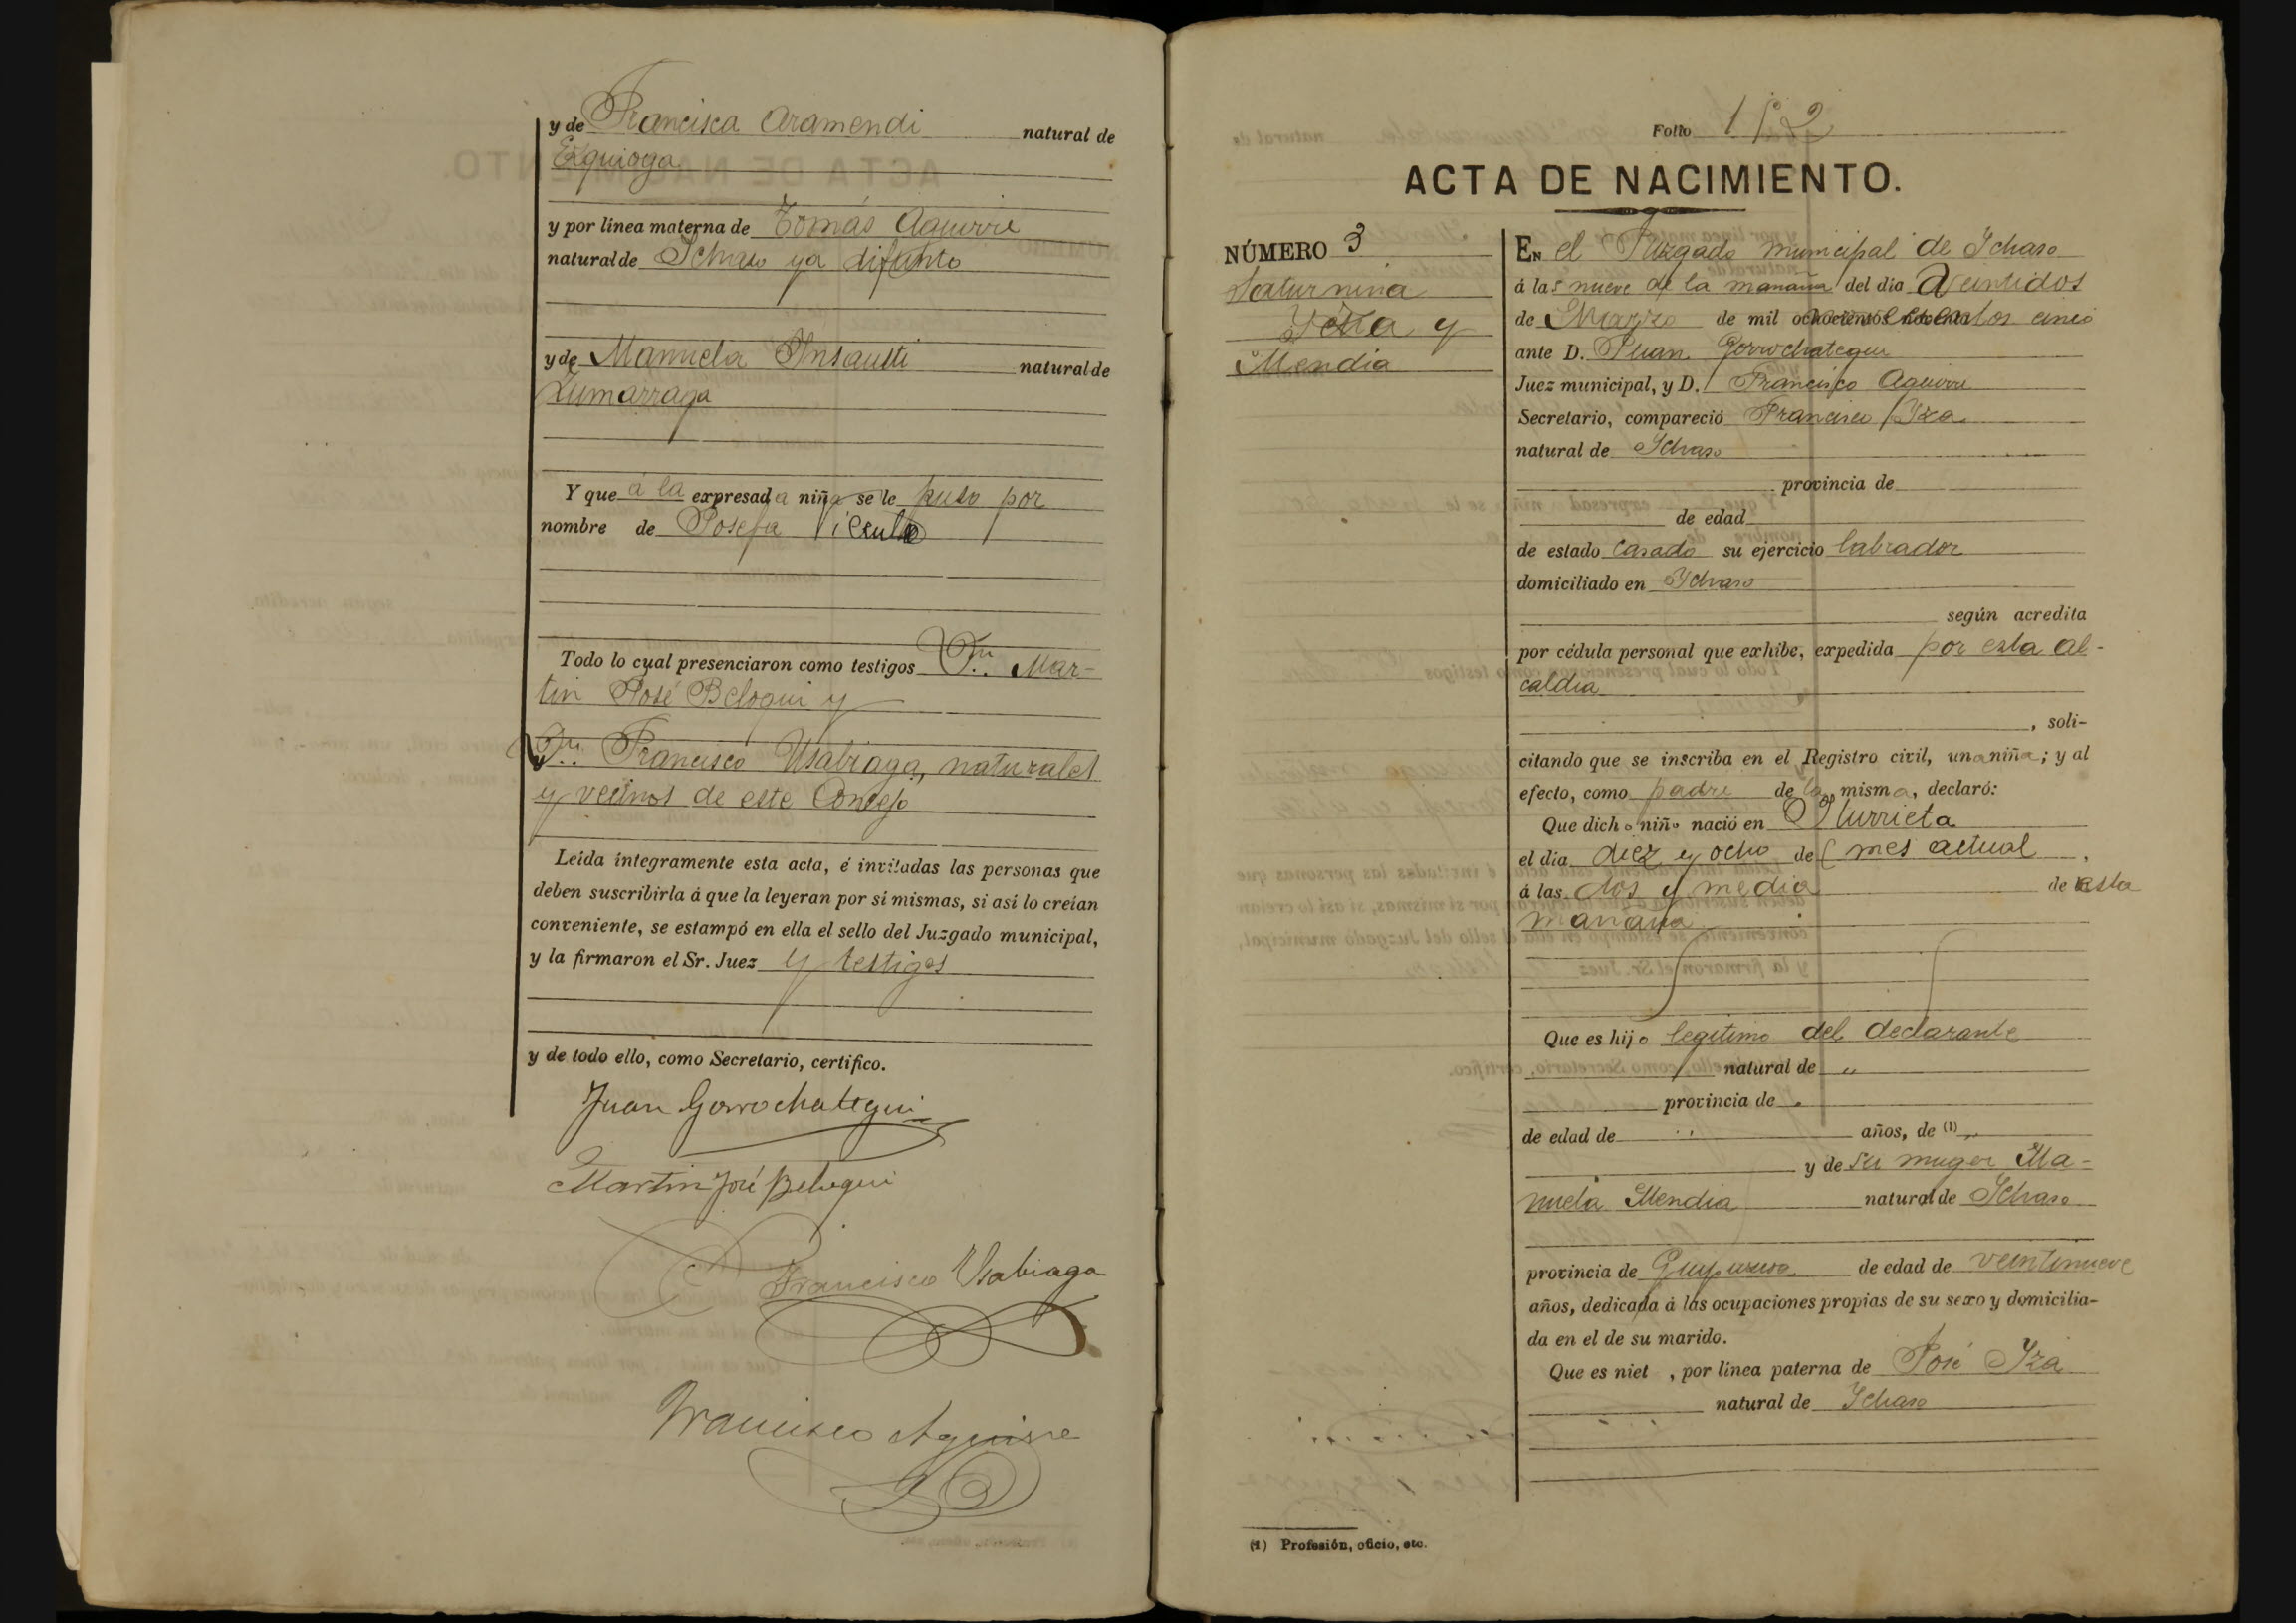 y de Francisca Aramendi natural de
Ezquioga
y por línea materna de Tomás Aguirre
natural de Ichaso ya difunto
y de Manuela Insausti natural de
Zumarraga
Y que á la expresada niña se le puso por
nombre de Josefa
Todo lo cual presenciaron como testigos Dn. Mar-
tin José Beloqui y
Dn. Francisco Usabiaga, naturales
y vecinos de este Concejo
Leída íntegramente esta acta, é invitadas las personas que
deben suscribirla á que la leyeran por sí mismas, si así lo creían
conveniente, se estampó en ella el sello del Juzgado municipal,
y la firmaron el Sr. Juez y testigos
y de todo ello, como Secretario, certifico.
Juan Gorrochategui
Martin José Beloqui
Francisco Usabiaga
Francisco Aguirre
Folio 152
ACTA DE NACIMIENTO.
NÚMERO 3
Saturnina
Yza y
Mendia
En el Juzgado municipal de Ichaso
á las nueve de la mañana del dia Veintidos
de Marzo de mil novecientos cinco
ante D. Juan Gorrochategui
Juez municipal, y D. Francisco Aguirre
Secretario, compareció Francisco Yza
natural de Ichaso
provincia de
de edad
de estado casado su ejercicio labrador
domiciliado en Ichaso
según acredita
por cédula personal que exhibe, expedida por esta al-
caldia
, soli-
citando que se inscriba en el Registro civil, una niña; y al
efecto, como padre de la misma, declaró:
Que dicho niño nació en Iturrieta
el dia diez y ocho del mes actual,
á las dos y media de esta
mañana
Que es hijo legitimo del declarante
natural de "
provincia de "
de edad de " años, de (1) "
y de su muger Ma-
nuela Mendia natural de Ichaso
provincia de Guipuzcoa de edad de veintinueve
años, dedicada á las ocupaciones propias de su sexo y domicilia-
da en el de su marido.
Que es niet , por línea paterna de José Yza
natural de Ichaso
(1) Profesión, oficio, etc.